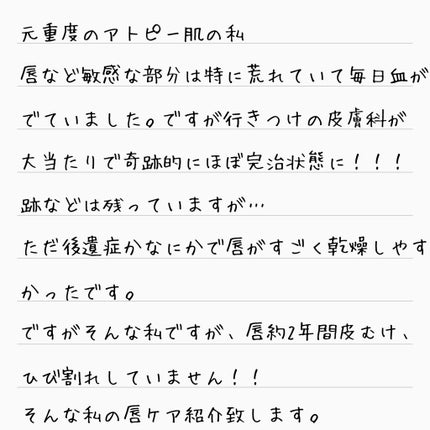 元重度のアトピー肌の私
唇など敏感な部分は特に荒れていて毎日血が
でていました。ですが行きつけの皮膚科が
大当たりで奇跡的にほぼ完治状態に！！！
跡などは残っていますが…
ただ後遺症かなにかで唇がすごく乾燥しやす
かったです。
ですがそんな私ですが、唇約2年間皮むけ、
ひび割れしていません！！
そんな私の唇ケア紹介致します。